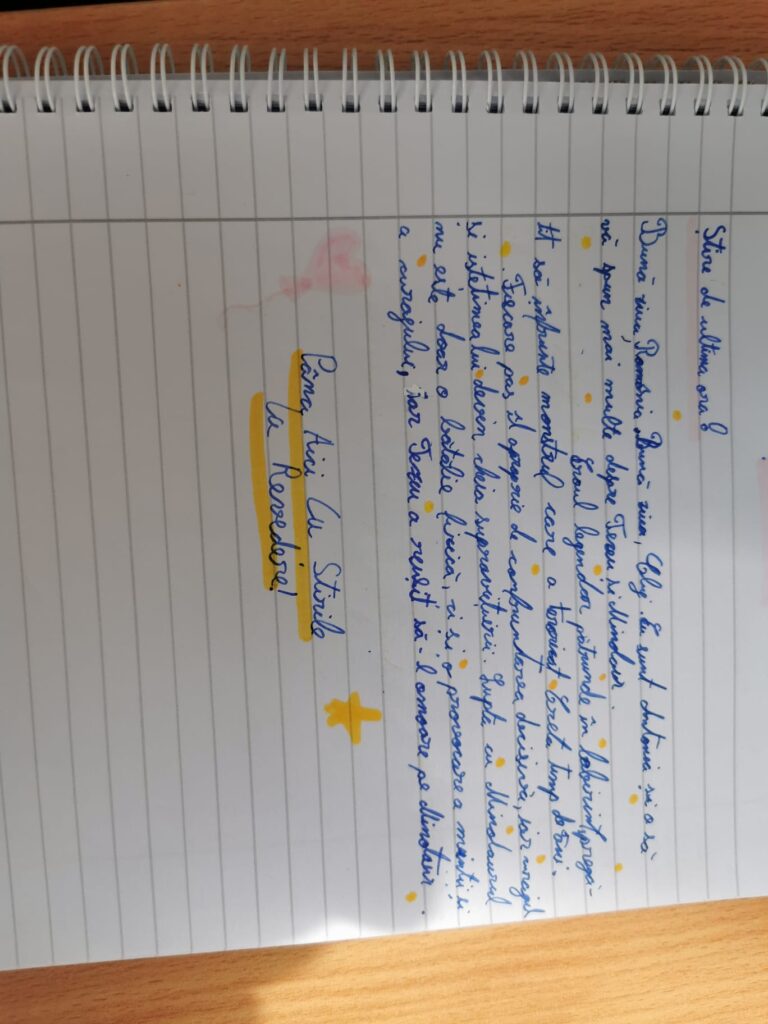 Stire de ultima oră
Bună ziua, România, Bună ziua, Cluj Eu sunt Antonia și o să
vă spun mai multe despre Tezeu și Minotaur.
Eroul legendar pătrunde în labirint, pregă-
tit să înfrunte monstrul care a terorizat Creta timp de ani.
Fiecare pas îl apropie de confruntarea decisivă, iar curajul
și istețimea lui devin cheia supraviețuirii. Lupta cu Minotaurul
nu este doar o bătălie fizică, ci și o provocare a minții și
a curajului, iar Tezeu a reușit să-l omoare pe Minotaur.
Până Aici Cu Stirile
Cu Revedere!